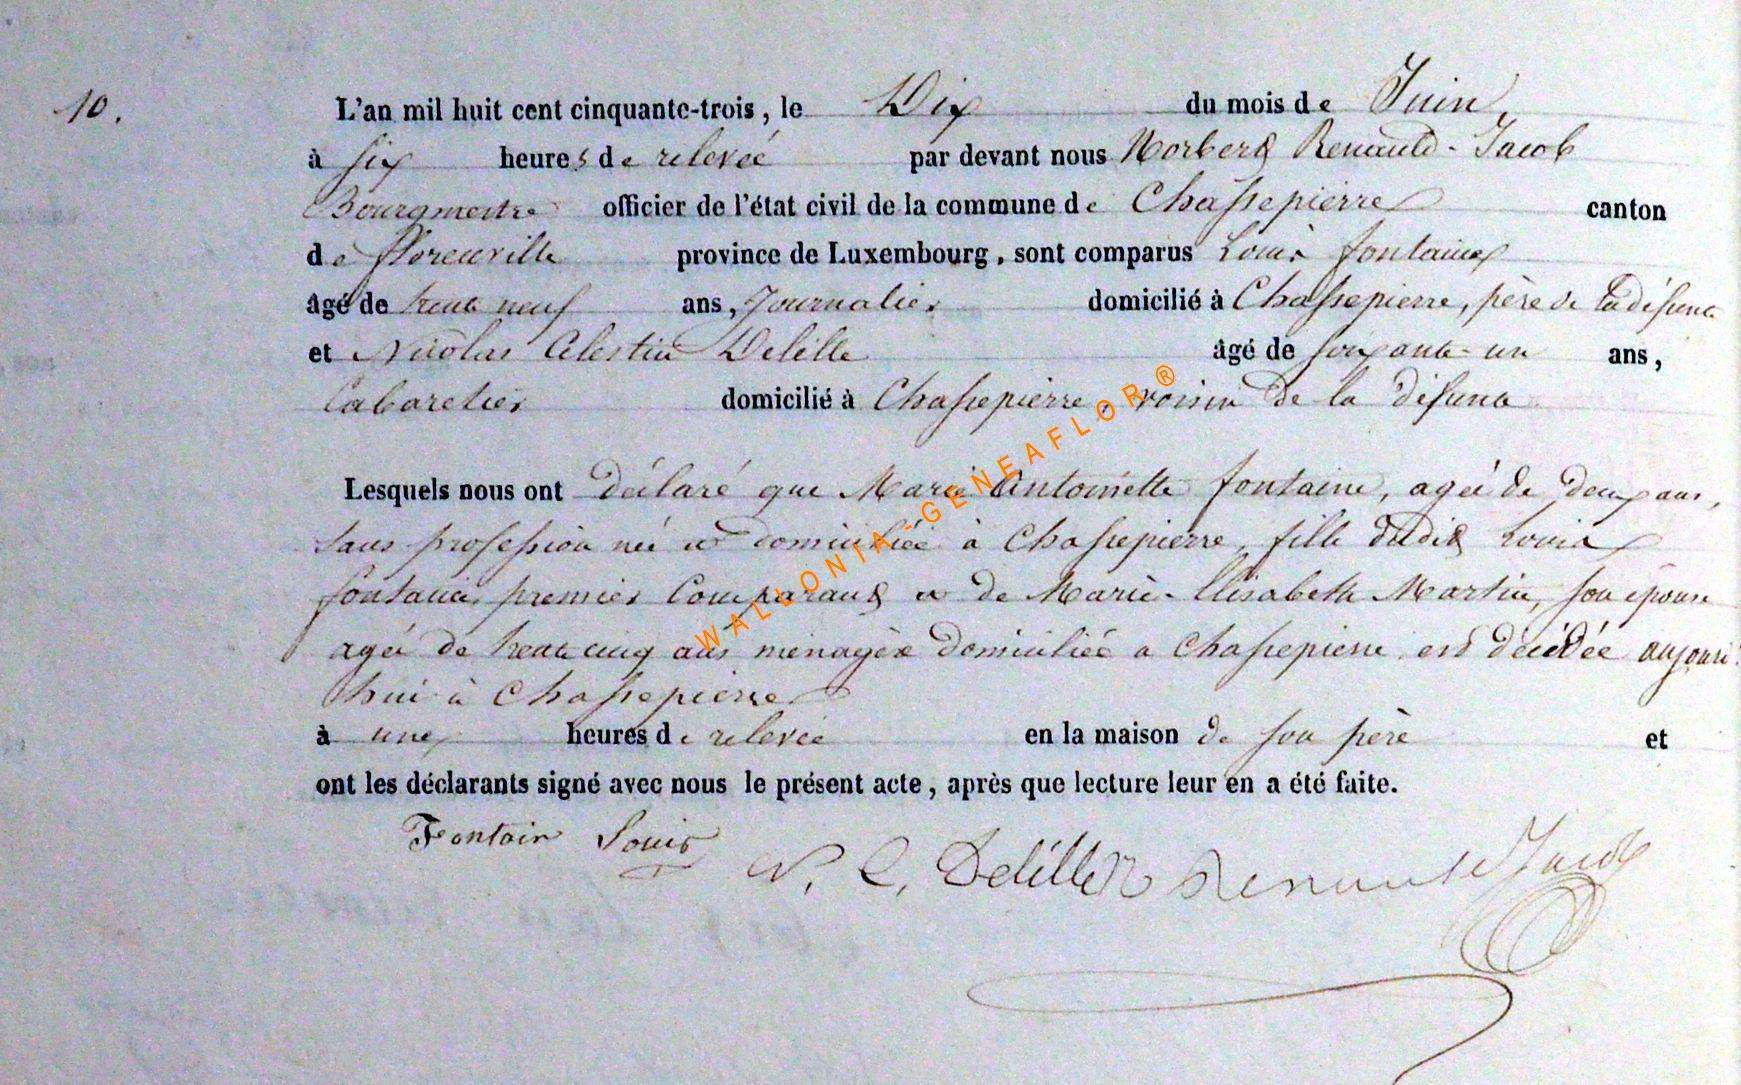 10.
L'an mil huit cent cinquante-trois, le Dix du mois de Juin,
à six heures de relevée par devant nous Norbert Renauld-Jacob
Bourgmestre officier de l'état civil de la commune de Chassepierre canton
de florenville province de Luxembourg, sont comparus Louis fontaine
âgé de trente neuf ans, Journalier domicilié à Chassepierre, père de la défunte
et Nicolas Celestin Delille âgé de soixante-un ans,
Cabaretier domicilié à Chassepierre, voisin de la défunte
Lesquels nous ont déclaré que Marie Antoinette fontaine, agée de deux ans,
sans profession née et domiciliée à Chassepierre, fille dudit Louis
fontaine, premier Comparant et de Marie-Elisabeth Martin, son épouse
agée de trente cinq ans ménagère domiciliée a Chassepierre est décédée aujourd'
hui à Chassepierre
à une heures de relevée en la maison de son père et
ont les déclarants signé avec nous le présent acte, après que lecture leur en a été faite.
Fontain Louis N. C. Delille Renauld Jacob
WALLONIA-GENEAFLOR®